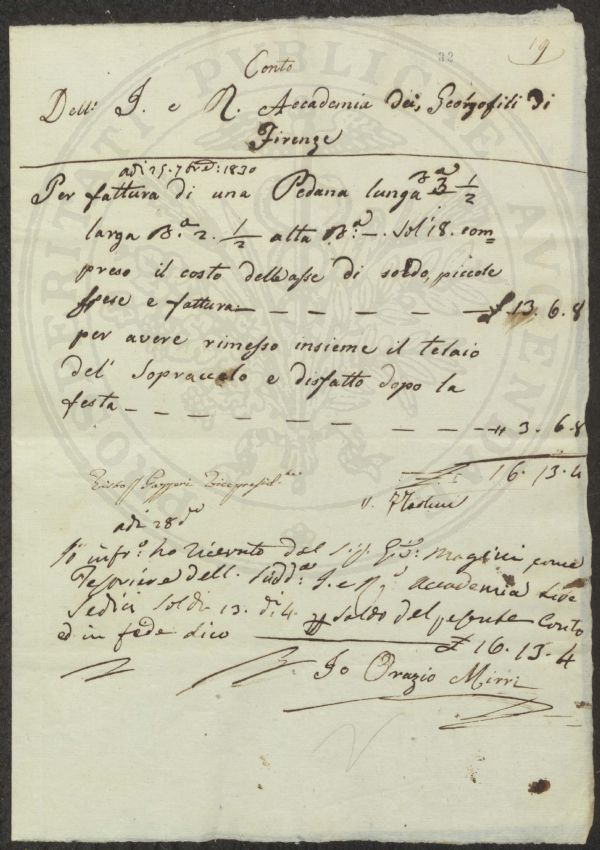 32
19
Conto
Dell: I. e R. Accademia dei Georgofili di
Firenze
adi 25. 7bre: 1830
Per fattura di una Pedana lunga Ba 3 1/2
larga B.a 2. 1/2 alta B.a — Sol 18. com=
preso il costo dell asse di soldo, piccole
spese e fattura — — — — — £ 13. 6. 8
per avere rimesso insieme il telaio
del Sopraccielo e disfatto dopo la
festa — — — — — — — — — " 3. 6. 8
£ 16. 13. 4
Gazzeri Vicepresid.te
V.
adi 28 do
Io infr.o ho ricevuto dal Sig. Magini come
Tesoriere dell. Sudd.a I. e R. Accademia Lire
Sedici Soldi 13. di 4. saldo del presente Conto
ed in fede dico — £ 16. 13. 4
Io Orazio Mirri
PROSPERITATI PUBLICAE AUGENDAE